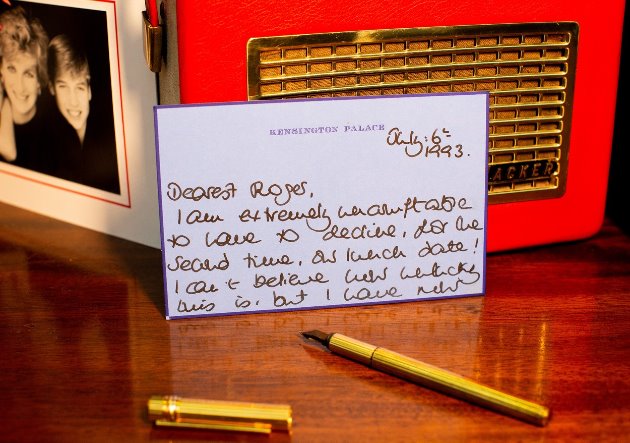 KENSINGTON PALACE
July: 6th
1993.
Dearest Roger,
I am extremely uncomfortable
to have to decline, for the
second time, our lunch date!
I can't believe how unlucky
this is, but I have now
ACKER